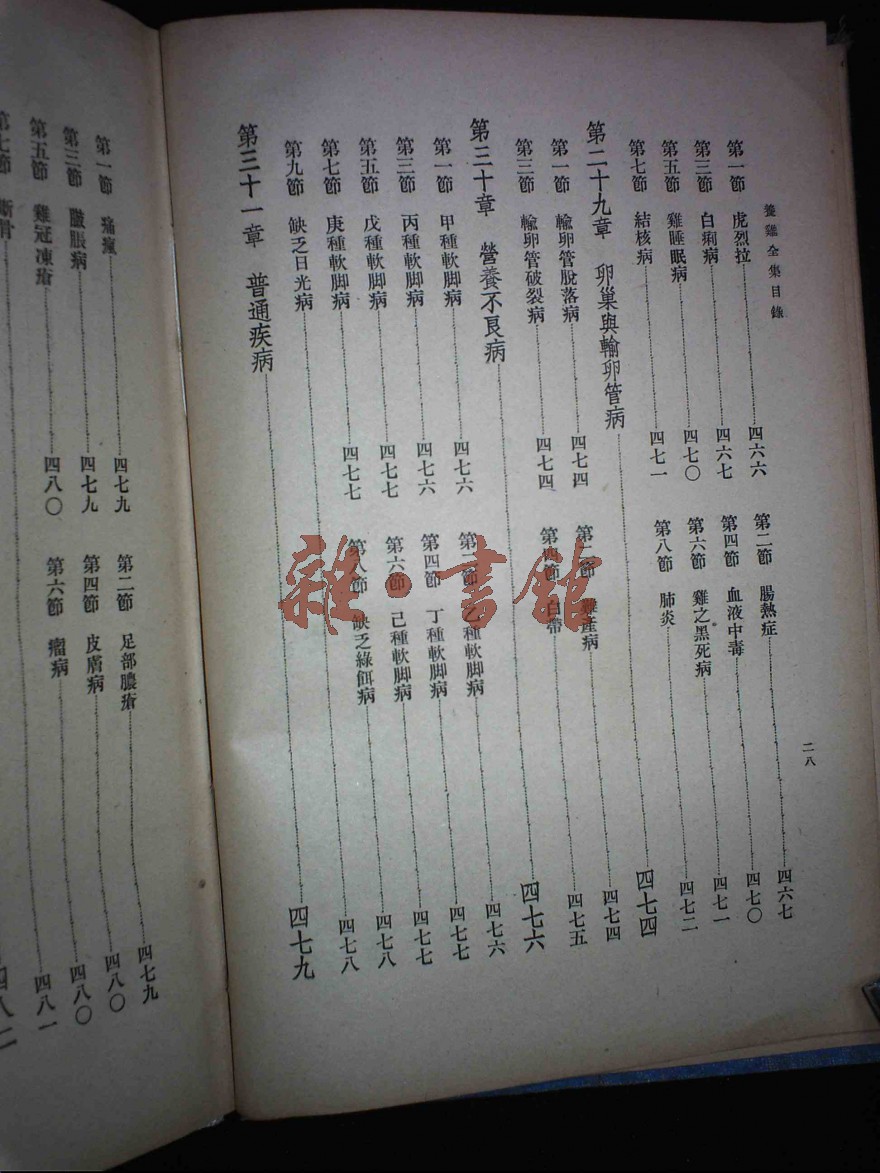 養雞全集目錄 二八
第一節 虎烈拉 四六六 第二節 腸熱症 四六七
第三節 白痢病 四六七 第四節 血液中毒 四七〇
第五節 雞睡眠病 四七〇 第六節 雞之黑死病 四七一
第七節 結核病 四七一 第八節 肺炎 四七二
第二十九章 卵巢與輸卵管病 四七四
第一節 輸卵管脫落病 四七四 第二節 難產病 四七四
第三節 輸卵管破裂病 四七四 第四節 白帶 四七五
第三十章 營養不良病 四七六
第一節 甲種軟脚病 四七六 第二節 乙種軟脚病 四七六
第三節 丙種軟脚病 四七六 第四節 丁種軟脚病 四七七
第五節 戊種軟脚病 四七七 第六節 己種軟脚病 四七七
第七節 庚種軟脚病 四七七 第八節 缺乏綠餌病 四七八
第九節 缺乏日光病 四七八
第三十一章 普通疾病 四七九
第一節 痛瘋 四七九 第二節 足部膿瘡 四七九
第三節 臌脹病 四七九 第四節 皮膚病 四八〇
第五節 雞冠凍瘡 四八〇 第六節 瘤病 四八〇
第七節 四八一
四八二
雜·書館